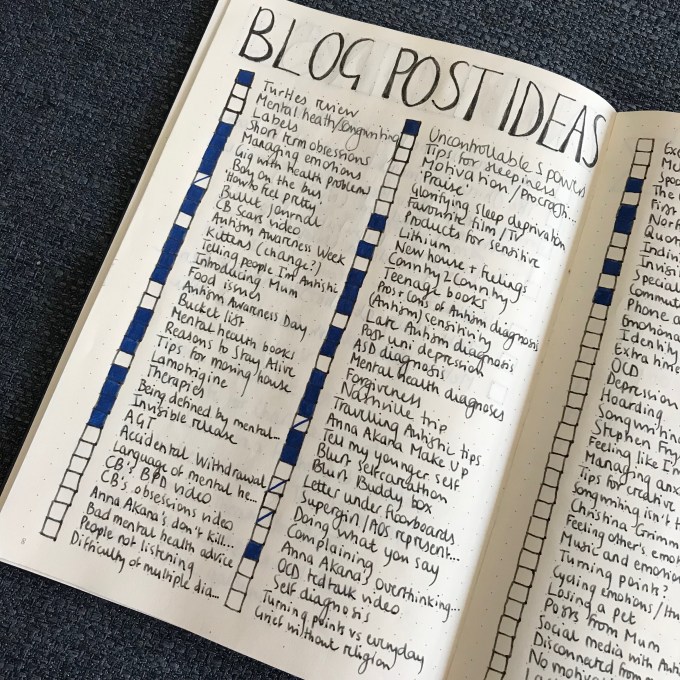 BLOG POST IDEAS
Turtles review
Mental health/songwriting
Labels
Short term obsessions
Managing emotions
Gig with health problems
Boy on the bus
'How to feel pretty'
Bullet Journal
CB Scars video
Autism Awareness Week
Kittens (change?)
Telling people I'm Autistic
Introducing Mum
Food issues
Autism Awareness Day
Bucket list
Mental health books
Reasons to Stay Alive
Tips for moving house
Lamotrigine
Therapies
Being defined by mental...
Invisible release
AGT
Accidental Withdrawal
Language of mental he...
CB's BPD video
CB's obsessions video
Anna Akana's don't kill...
Bad mental health advice
People not listening
Difficulty of multiple dia...
Uncontrollable spowers
Tips for sleepiness
Motivation/Procrasti...
'Praise'
Glorifying sleep deprivation
Favourite film/TV
Products for sensitive
Lithium
New house + feelings
Country2Country
Teenage books
Pros + Cons of Autism diagnosis
(Autism) sensitivity
Late Autism diagnosis
Post uni depression
ASD diagnosis
Mental health diagnoses
Forgiveness
Nashville trip
Travelling Autistic tips
Anna Akana Make Up
Tell my younger self
Blurt selfcareathon
Blurt Buddy box
Letter under floorboards
Supergirl/AOS represent...
Doing what you say
Complaining
Anna Akana's overthinking...
OCD tedtalk video
Self diagnosis
Turning points vs everyday
Grief without religion
The
First
Nor
Quo
Indi
Invisi
Special
Commut
Phone a
Emotiona
Identity
Extra time
OCD
Depression
Hoarding
Songwriting
Stephen Fry
Feeling like I'm
Managing anx
Tips for creative
Songwriting isn't t
Christina Grimm
Feeling other's emot
Music and emotion
Turning points?
Cycling emotions/
Losing a pet
Posts from Mum
Social media with Auti
Disconnected from
No motiva